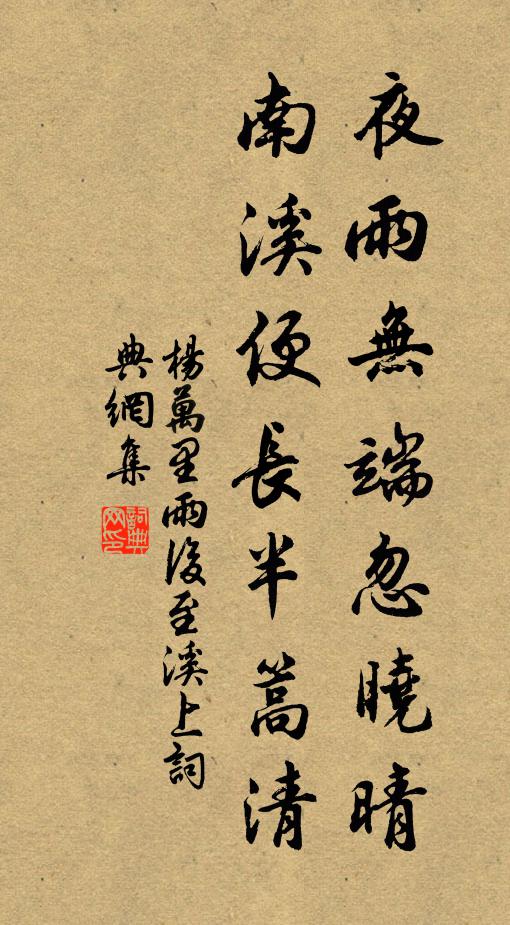 夜雨無端忽曉晴
南溪便長半篙清
楊萬里雨後至溪上詞
典網集
詞典
网印